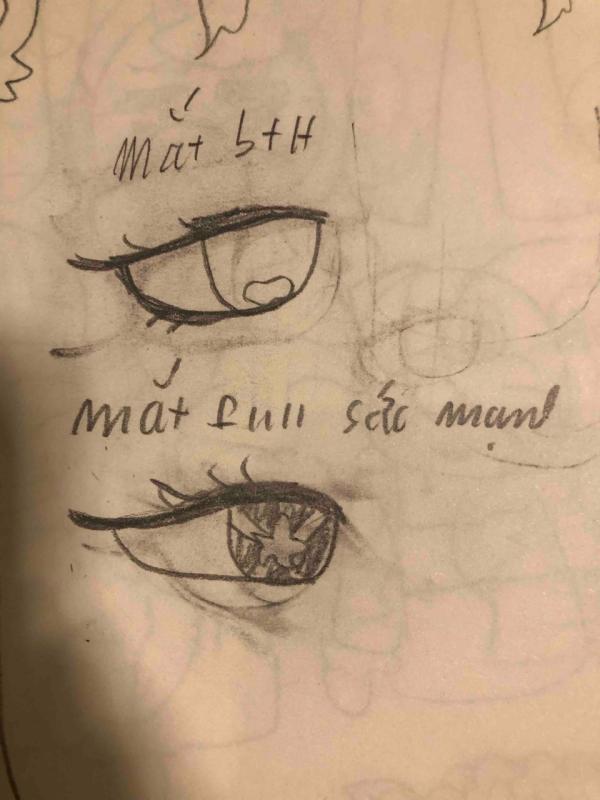 mắt btH
mắt full sức mạnh